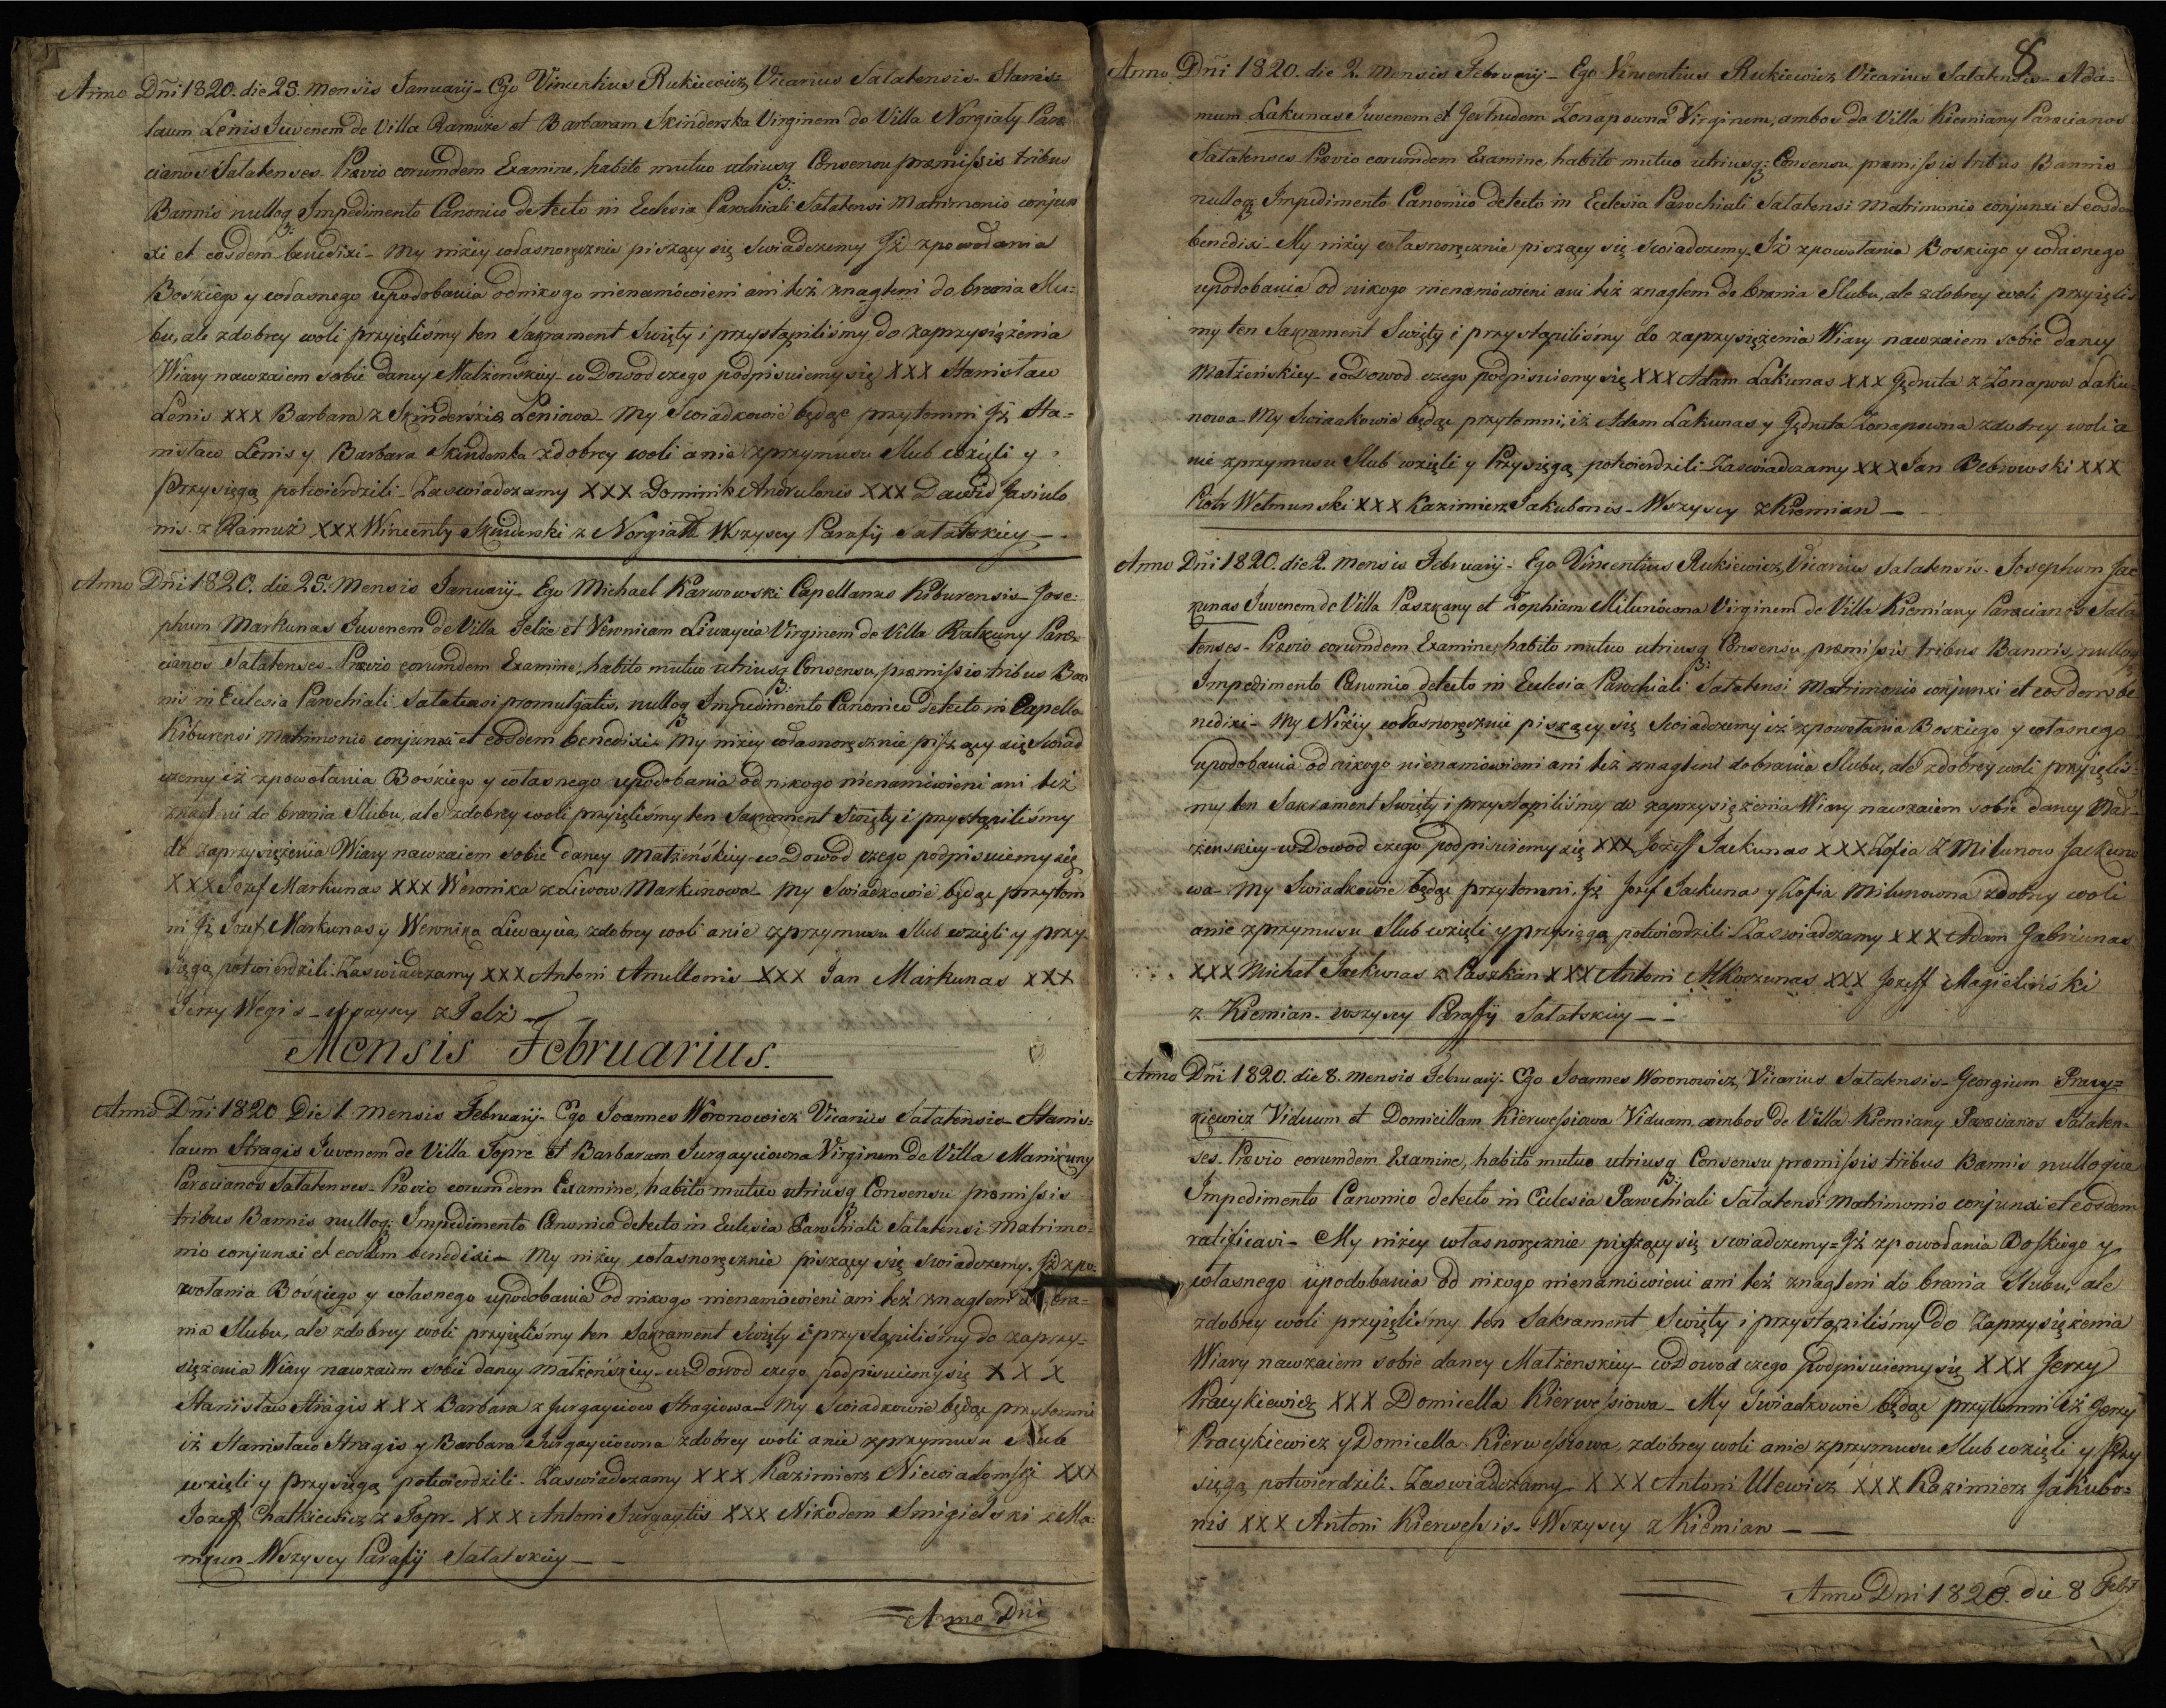 Anno Dñi 1820. die 25. Mensis Januarij - Ego Vincentius Rukiewicz Vicarius Salatensis - Stanis:
laum Lenis Juvenem de Villa Ramuże et Barbaram Skinderska Virginem de Villa Norgiaty Paro
cianos Salatenses - Prævio eorumdem Examine, habito mutuo utriusq Consensu præmissis tribus
Bannis nulloq Impedimento Canonico detecto in Eclesia Parochiali Salatensi Matrimonio conjun
xi et eosdem benedixi - My niżey własnoręcznie piszący się Swiadczemy Jż zpowodania
Boskiego y własnego upodobania odnikogo nienamówieni ani też znagleni do brania Slu:
bu, ale zdobrey woli przyięliśmy ten Sakrament Swięty i przystąpiliśmy do zaprzysiężenia
Wiary nawzaiem sobie daney Małżenskiey - w Dowod czego podpisuiemy się XXX Stanisław
Lenis XXX Barbara z Skinderskich Leniowa - My Swiadkowie będąc przytomni Jż Sta=
nisław Lenis y Barbara Skinderska zdobrey woli anie zprzymusu Slub wzięli y
Przysięgą potwierdzili - Zaswiadczamy XXX Dominik Andrulonis XXX Dawid Jasiulo
nis z Ramuż XXX Wincenty Skinderski z Norgiatt Wszyscy Parafij Sałatskiey -
Anno Dñi 1820. die 25. Mensis Januarij - Ego Michael Karwowski Capellanus Kiburensis - Jose:
phum Markunas Juvenem de Villa Jelże et Weronicam Liwaycia Virginem de Villa Ratkuny Paro
cianos Salatenses - Prævio eorumdem Examine, habito mutuo utriusq Consensu, præmissis tribus Ban
nis in Eclesia Parochiali Salatensi promulgatis, nulloq Impedimento Canonico detecto in Capella
Kiburensi Matrimonio conjunxi et eosdem benedixi - My niżey własnoręcznie piszący się Swiad
czemy iż zpowołania Boskiego y własnego upodobania od nikogo nienamówieni ani też
znagleni do brania Slubu, ale zdobrey woli przyięliśmy ten Sakrament Swięty i przystąpiliśmy
do zaprzysiężenia Wiary nawzaiem sobie daney Małżeńskiey - w Dowod czego podpisuiemy się
XXX Jozef Markunas XXX Weronika z Liwow Markunowa - My Swiadkowie będąc przytom
ni Jż Jozef Markunas y Weronika Liwaycia zdobrey woli anie zprzymusu Slub wzięli y przy-
sięgą potwierdzili. Zaswiadczamy XXX Antoni Amullonis - XXX Jan Markunas XXX
Jerzy Wegis - wszyscy z Jelż -
Mensis Februarius.
Anno Dñi 1820 Die 1 Mensis Februarij - Ego Joannes Woronowicz Vicarius Salatensis - Stanis:
laum Stragis Juvenem de Villa Topre et Barbaram Jurgayciowna Virginem de Villa Manikuny
Parocianos Salatenses - Prævio eorumdem Examine, habito mutuo utriusq Consensu præmissis
tribus Bannis nulloq Impedimento Canonico detecto in Eclesia Parochiali Salatensi Matrimo=
nio conjunxi et eosdem benedixi - My niżey własnoręcznie piszący się swiadczemy. Jż zpo:
wołania Boskiego y własnego upodobania od nikogo nienamówieni ani też znagleni do bra=
nia Slubu, ale zdobrey woli przyięliśmy ten Sakrament Swięty i przystąpiliśmy do zaprzy-
siężenia Wiary nawzaiem sobie daney Małżeńskiey - w Dowod czego podpisuiemy się X X X
Stanisław Stragis XXX Barbara z Jurgayciow Stragiowa - My Swiadkowie będąc przytomni
iż Stanisław Stragis y Barbara Jurgayciowna zdobrey woli anie zprzymusu Slub
wzięli y przysięgą potwierdzili - Zaswiadczamy XXX Kazimierz Niewiadomski XXX
Jozeff Chatkiewicz z Topr - XXX Antoni Jurgaytis XXX Nikodem Smigielski z Ma:
nikun - Wszyscy Parafij Sałatskiey -
Anno Dni
8
Anno Dñi 1820. die 2. Mensis Februarij - Ego Vincentius Rukiewicz Vicarius Salatensis - Ada=
mum Lakunas Juvenem et Gertrudem Zonapowna Virginem, ambos de Villa Kiemiany Parocianos
Salatenses Prævio eorumdem Examine, habito mutuo utriusq: Consensu, præmissis tribus Bannis
nulloq: Impedimento Canonico detecto in Eclesia Parochiali Salatensi Matrimonio conjunxi et eosdem
benedixi - My niżey własnoręcznie piszący się Swiadczemy. Jż zpowołania Boskiego y własnego
upodobania od nikogo nienamówieni ani też znagleni do brania Slubu, ale zdobrey woli przyięliś
my ten Sakrament Swięty i przystąpiliśmy do zaprzysiężenia Wiary nawzaiem sobie daney
Małżeńskiey - w Dowod czego podpisuiemy się XXX Adam Lakunas XXX Giedruta z Zonapow Laku=
nowa - My Swiadkowie będąc przytomni, iż Adam Lakunas y Giedruta Zonapowna zdobrey woli a
nie zprzymusu Slub wzięli y Przysięgą potwierdzili - Zaswiadczamy XXX Jan Bebrowski XXX
Piotr Welmunski XXX Kazimierz Jakubonis - Wszyscy z Kiemian -
Anno Dñi 1820. die 2. Mensis Februarij - Ego Vincentius Rukiewicz, Vicarius Salatensis - Josephum Jac
kunas Juvenem de Villa Paszkany et Zophiam Milunowna Virginem de Villa Kiemiany Parocianos Sala
tenses - Prævio eorumdem Examine, habito mutuo utriusq Consensu, præmissis tribus Bannis, nulloq
Impedimento Canonico detecto in Eclesia Parochiali Salatensi Matrimonio conjunxi et eosdem be
nedixi - My Niżey własnoręcznie piszący się Swiadczemy iż zpowołania Boskiego y własnego
upodobania od nikogo nienamówieni ani też znagleni do brania Slubu, ale zdobrey woli przyięliś-
my ten Sakrament Swięty i przystąpiliśmy do zaprzysiężenia Wiary nawzaiem sobie daney Mał-
żenskiey - w Dowod czego podpisuiemy się XXX Jozeff Jackunas XXX Zofia z Milunow Jackuno
wa - My Swiadkowie będąc przytomni, Jż Jozef Jackunas y Zofia Milunowna zdobrey woli
anie zprzymusu Slub wzięli y przysięgą potwierdzili Zaswiadczamy XXX Adam Gabriunas
XXX Michał Jackunas z Paszkan XXX Antoni Mkorzunas XXX Jozeff Magieliński
z Kiemian - wszyscy Parafij Sałatskiey -
Anno Dñi 1820. die 8. Mensis Februarij - Ego Joannes Woronowicz, Vicarius Salatensis - Georgium Pracy=
kiewicz Viduum et Domicillam Kierwessiowa Viduam ambos de Villa Kiemiany Parocianos Salaten=
ses - Prævio eorumdem Examine, habito mutuo utriusq Consensu præmissis tribus Bannis nulloque
Impedimento Canonico detecto in Eclesia Parochiali Salatensi Matrimonio conjunxi et eosdem
ratificavi - My niżey własnoręcznie piszący się swiadczemy = Jż zpowodania Boskiego y
własnego upodobania od nikogo nienamówieni ani też znagleni do brania Slubu, ale
zdobrey woli przyięliśmy ten Sakrament Swięty i przystąpiliśmy do Zaprzysiężenia
Wiary nawzaiem sobie daney Małżenskiey - w Dowod czego podpisuiemy się XXX Jerzy
Pracykiewicz XXX Domicella Kierwessiowa - My Swiadkowie będąc przytomni iż Jerzy
Pracykiewicz y Domicella Kierwessiowa, zdobrey woli anie zprzymusu Slub wzięli y Przy
sięgą potwierdzili. Zaswiadczamy XXX Antoni Ulewicz XXX Kazimierz Jakubo=
nis XXX Antoni Kierwessis - Wszyscy z Kiemian -
Anno Dni 1820. die 8 Febr